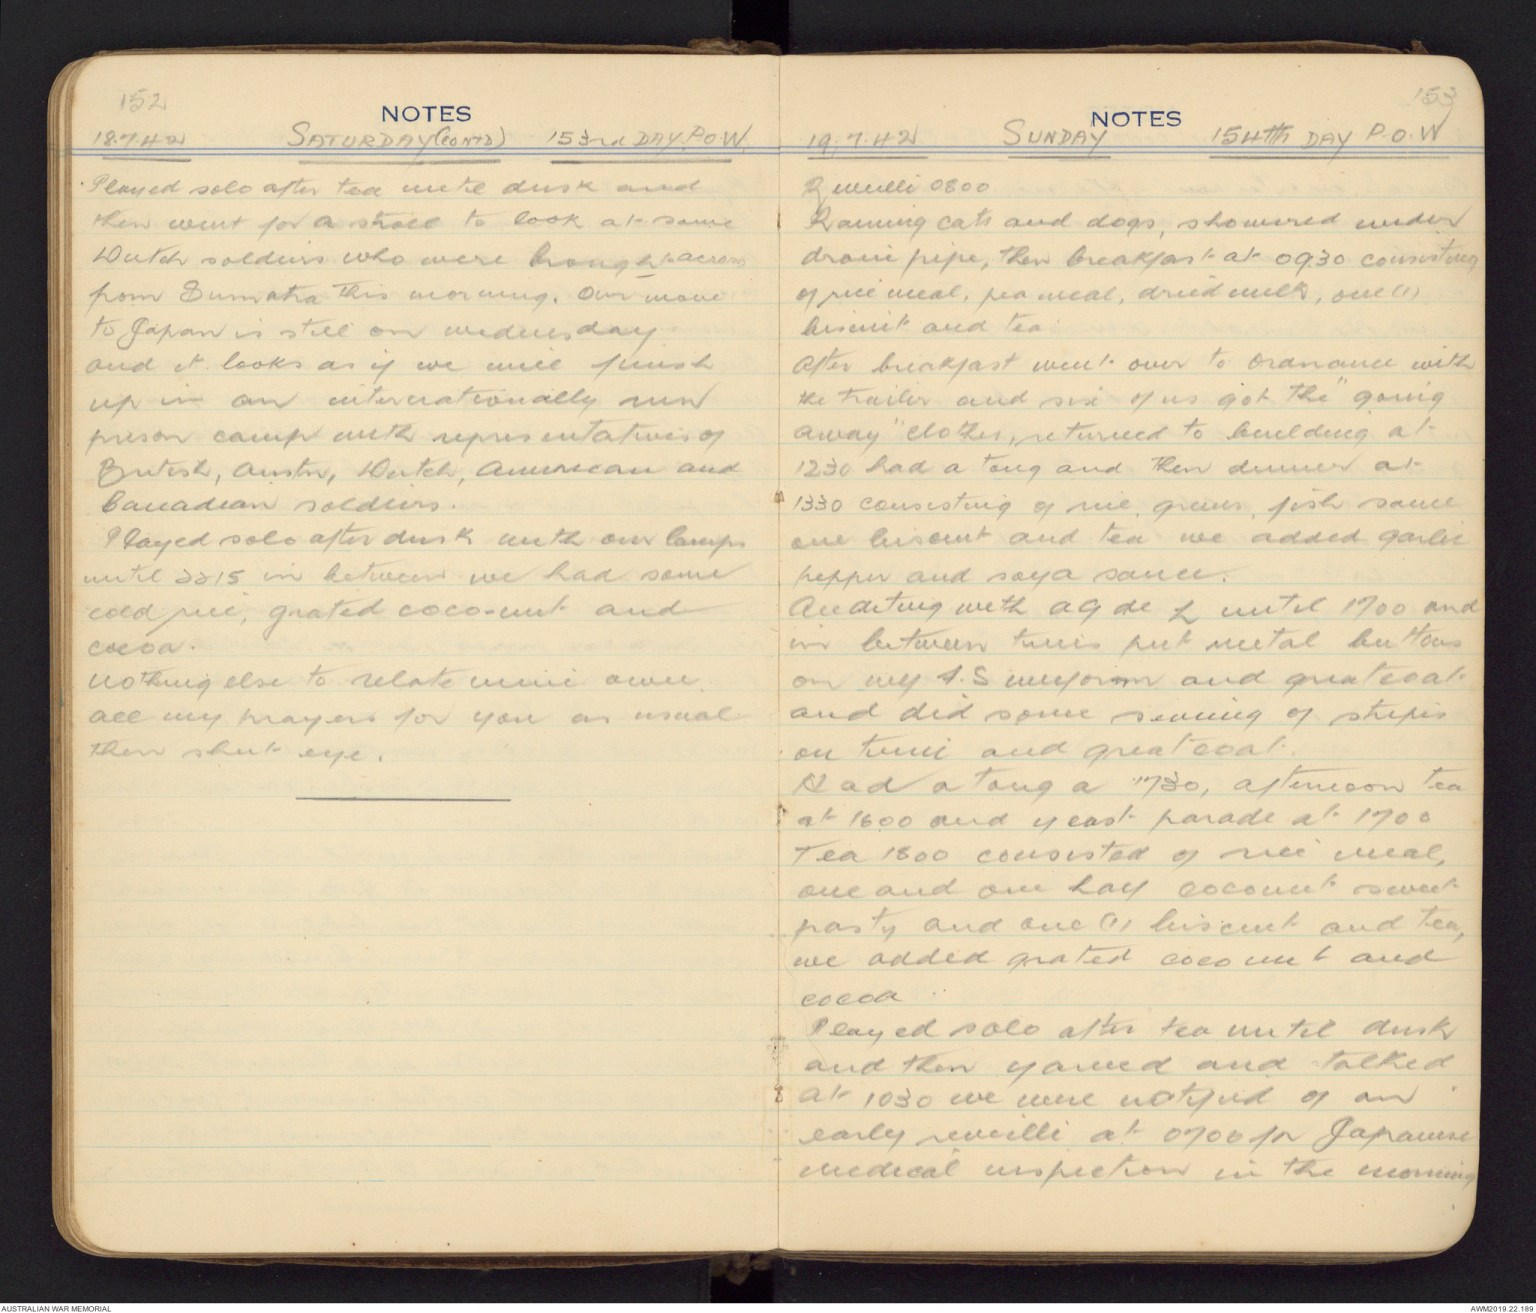 152
NOTES
18.7.42 SATURDAY (CONTD) 153rd DAY P.O.W.
Played solo after tea until dusk and
then went for a stroll to look at some
Dutch soldiers who were brought across
from Sumatra this morning. Our move
to Japan is still on wednesday
and it looks as if we will finish
up in an internationally run
prison camp with representatives of
British, Austn, Dutch, American and
Canadian soldiers.
Played solo after dusk with our lamps
until 2215 in between we had some
cold rice, grated coco-nut and
cocoa.
nothing else to relate mine own
all my prayers for you as usual
then shut eye.
153
NOTES
19.7.42 SUNDAY 154th DAY P.O.W
Reveilli 0800
Raining cats and dogs, showered under
drain pipe, then breakfast at 0930 consisting
of rice meal, pea meal, dried milk, one (1)
biscuit and tea
After breakfast went over to Ordnance with
the trailer and six of us got the "going
away" clothes, returned to building at
1230 had a tong and then dinner at
1330 consisting of rice, greens, fish sauce
one biscuit and tea we added garlic
pepper and soya sauce.
Auditing with AG de L until 1700 and
in between times put metal buttons
on my S.S uniform and greatcoat
and did some sewing of stripes
on tunic and greatcoat.
Had a tong a 1730, afternoon tea
at 1600 and yeast parade at 1700
Tea 1800 consisted of rice meal,
one and one half coconut sweet
pasty and one (1) biscuit and tea,
we added grated coconut and
cocoa
Played solo after tea until dusk
and then yarned and talked
at 1030 we were notified of an
early reveilli at 0700 for Japanese
medical inspection in the morning
AUSTRALIAN WAR MEMORIAL
AWM2019.22.189